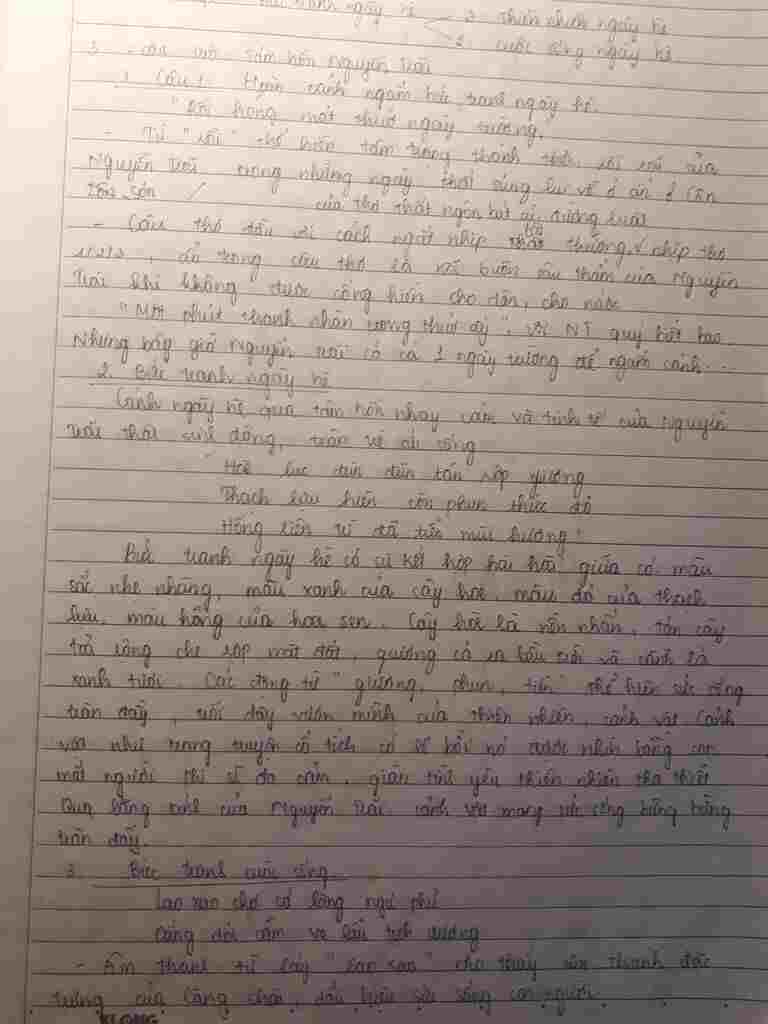 tranh ngày hè 1. Thiên nhiên ngày hè
2. cuộc sống ngày hè
3. tâm hồn Nguyễn Trãi
1. Câu 1. Hoàn cảnh ngắm bức tranh ngày hè.
"Rồi hóng mát thuở ngày trường.
- Từ "rồi" thể hiện tâm trạng thảnh thơi,
Nguyễn Trãi trong những ngày tháng lui về ở ẩn ở Côn
Sơn / của thơ thất ngôn bát cú đường luật
- Câu thơ đầu với cách ngắt nhịp thất thường, nhịp thơ
1/2/3, ẩn trong câu thơ là nỗi buồn sầu thảm của Nguyễn
Trãi khi không được cống hiến cho dân, cho nước
"Một phút thanh nhàn trong thuở ấy", với NT quý biết bao
Nhưng bây giờ Nguyễn Trãi có cả 1 ngày trường để ngắm cảnh...
2. Bức tranh ngày hè
Cảnh ngày hè qua tâm hồn nhạy cảm và tinh tế của Nguyễn
Trãi thật sinh động, tràn sống
Hoè lục đùn đùn tán rợp giương
Thạch lựu hiên còn phun thức đỏ
Hồng liên trì đã tiễn mùi hương"
Bức tranh ngày hè có sự kết hợp hài hoà giữa có màu
sắc nhẹ nhàng, màu xanh của cây hoè, màu đỏ của thạch
lựu, màu hồng của hoa sen. Cây hoè là tán cây
toả rộng che rợp mặt đất, giương cả ra bầu trời và cành lá
xanh tươi. Các động từ "giương, phun, tiễn" thể hiện sức sống
tràn đầy, trỗi dậy mình của thiên nhiên, cảnh vật. Cảnh
vật như trong truyện cổ tích có lẽ bởi nó được nhìn bằng con
mắt người thi sĩ đa cảm, giàu tình yêu thiên nhiên tha thiết
Qua của Nguyễn Trãi cảnh vật mang sức sống bừng bừng
tràn đầy.
3. Bức tranh cuộc sống
Lao xao chợ cá làng ngư phủ
Dắng dỏi cầm ve lầu tịch dương
- Âm thanh từ láy "lao xao" cho thấy âm thanh đặc
trưng của làng chài, dấu hiệu sự sống con người.